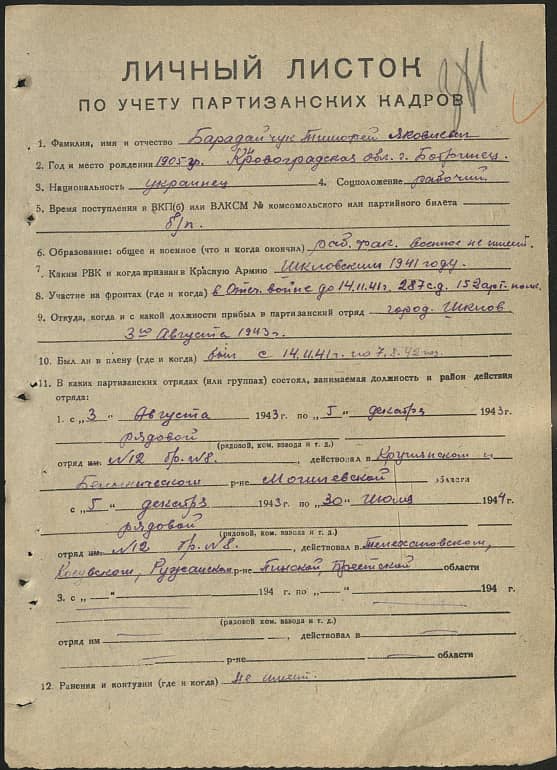 ЛИЧНЫЙ ЛИСТОК
ПО УЧЕТУ ПАРТИЗАНСКИХ КАДРОВ
1. Фамилия, имя и отчество Барадайчук Тимофей Яковлевич
2. Год и место рождения 1905 гр. Кировоградская обл. г. Бобринец.
3. Национальность украинец 4. Соцположение рабочий.
5. Время поступления в ВКП(б) или ВЛКСМ № комсомольского или партийного билета
б/п.
6. Образование: общее и военное (что и когда окончил) раб. фак. военное не имеет.
7. Каким РВК и когда призван в Красную Армию Шкловским 1941 году.
8. Участие на фронтах (где и когда) в Отеч. войне до 14.11.41г. 287 с.д. 152 арт. полк.
9. Откуда, когда и с какой должности прибыл в партизанский отряд город. Шклов
3го Августа 1943г.
10. Был ли в плену (где и когда) был с 14.11.41г. по 7.8.42
11. В каких партизанских отрядах (или группах) состоял, занимаемая должность и район действия
отряда:
1. с „3" Августа 1943 г. по „5" декабря 1943 г.
рядовой
(рядовой, ком. взвода и т. д.)
отряд им. №12 бр. №8. , действовал в Круглянском и
Белыничского р-не Могилевской области
с „5" декабря 1943 г. по „30" Июля 1944 г.
рядовой
(рядовой, ком. взвода и т. д.)
отряд им. №12 бр. №8. , действовал в Телехановском,
Косувском, Ружанском р-не Пинской, Брестской области
3. с „—" 194 г. по „—" 194 г.
(рядовой ком. взвода и т. д.)
отряд им , действовал в
р-не области
12. Ранения и контузии (где и когда) не имеет.